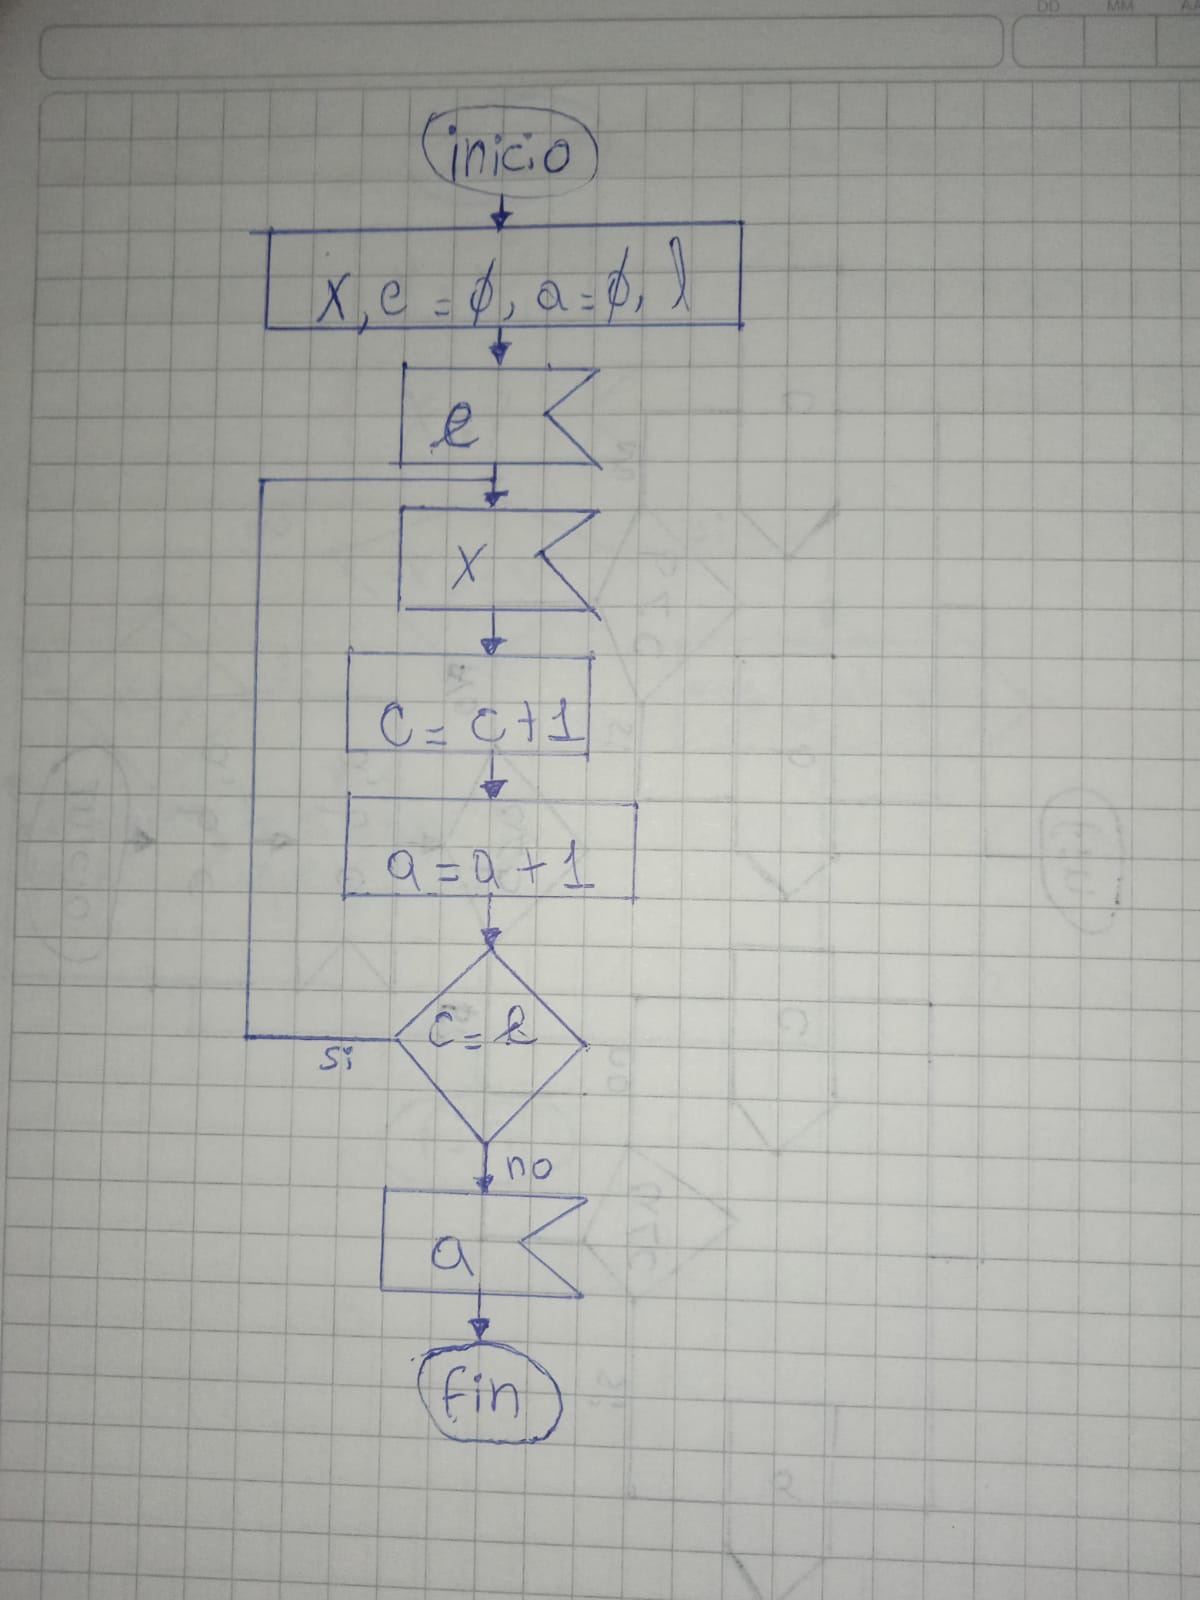 DD MM AA
inicio
x, c = ϕ, a = ϕ, l
l
x
c = c + 1
a = a + 1
c = l
si
no
a
fin